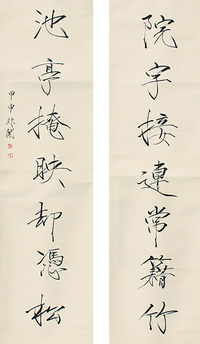 院宇接連常籍竹
池亭掩映却憑松
甲申